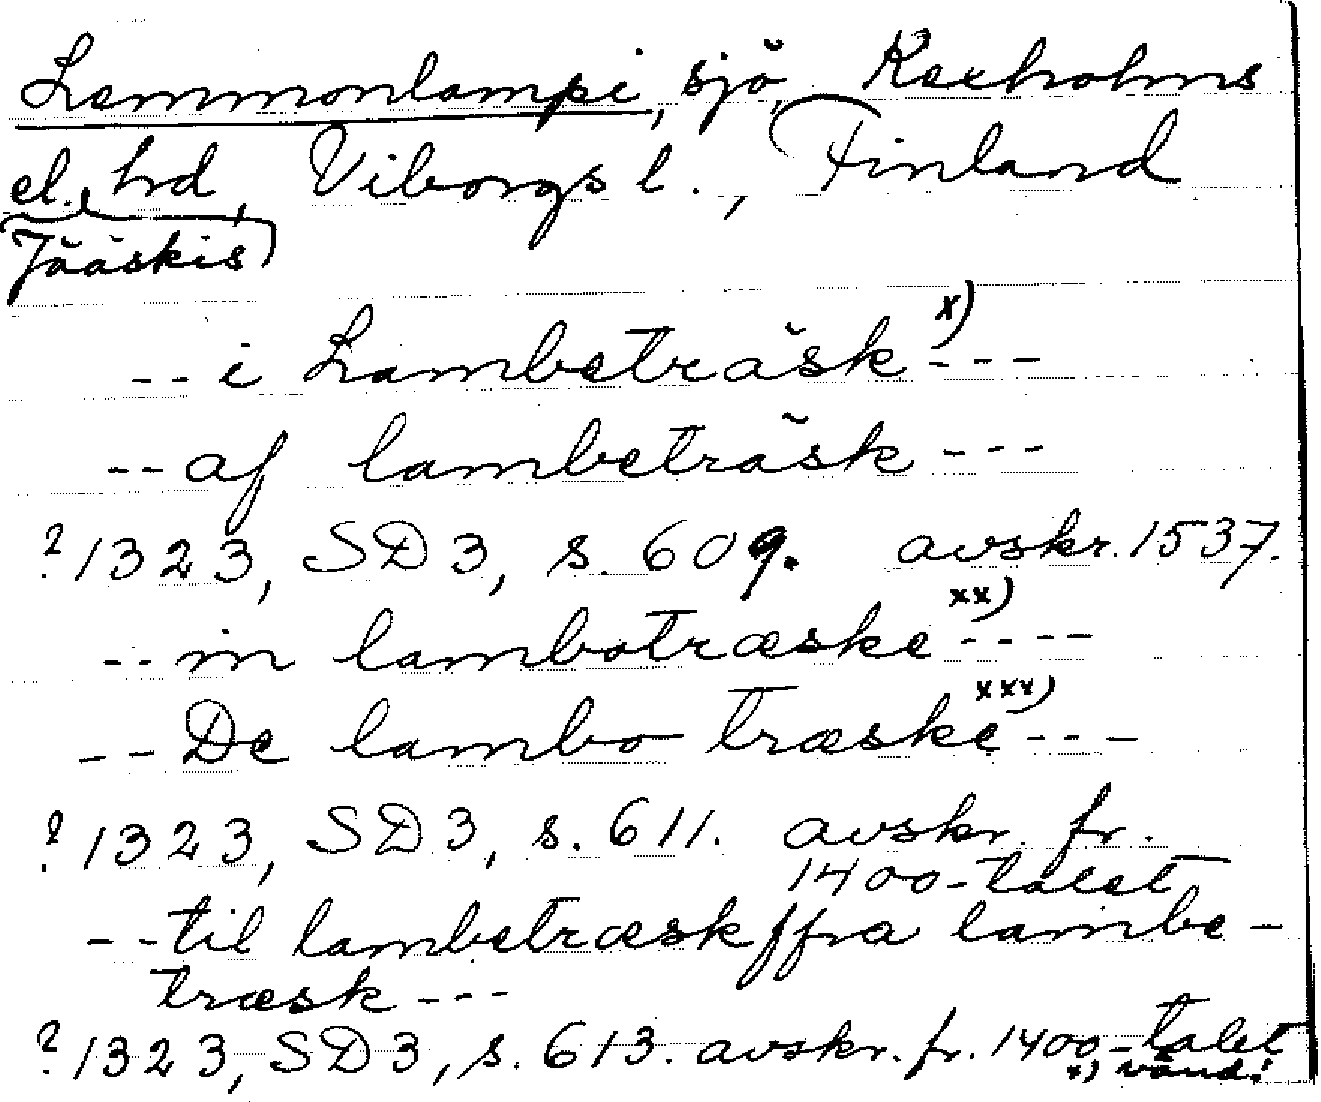 Lemmonlampi, sjö, Kexholms
el. hd, Viborgs l., Finland
Jääskis
--i Lambeträsk x)---
--af lambeträsk---
? 1323, SD 3, s. 609. avskr. 1537.
--in lambotræske xx)----
--De lambo træske xxx)---
? 1323, SD 3, s. 611. avskr. fr.
1400-talet
--til lambetræsk // fra lambe-
træsk---
? 1323, SD 3, s. 613. avskr. fr. 1400-talet
x) vänd!